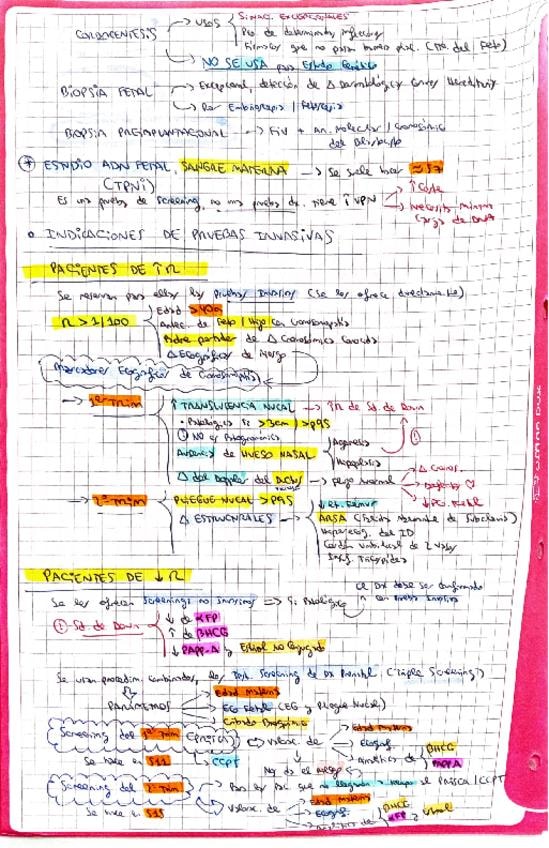 CORDOCENTESIS → USOS
SITUAC. EXCEPCIONALES
Dx de determinadas infecciones
Fármacos que no pasan barrera plac. (Tto. del Feto)
NO SE USA para Estudio Genético
BIOPSIA FETAL → Excepcional, detección de Δ Dermatológicas Graves Hereditarias
→ Por Embrioscopia / Fetoscopia
BIOPSIA PREIMPLANTACIONAL → FIV + An. Molecular / Cromosómico
del Blastocito
* ESTUDIO ADN FETAL, SANGRE MATERNA → Se suele hacer ≈ S7
(TPNI)
Es una prueba de Screening, no una prueba dx. tiene ↑ VPN
↑ Coste
Necesita mínima
carga de DNA
• INDICACIONES DE PRUEBAS INVASIVAS
PACIENTES DE ↑R
Se reservan para ellas las Pruebas Invasivas (Se les ofrece directamente)
R > 1/100
Edad > 40a
Antec. de Feto / Hijo con Cromosomopatía
Padre portador de Δ Cromosómica Conocida
Δ Ecográficas de riesgo
Marcadores Ecográficos de Cromosomopatía
→ 1er Trim
↑ TRANSLUCENCIA NUCAL → ↑R de Sd. de Down
• Patológica si > 3mm / > p95
! NO es Patognomónico
Ausencia de HUESO NASAL
Agenesia
Hipoplasia
Δ del Doppler del Ductus → Flujo Anormal
Δ Crom.
Defectos ♡
→ 2º Trim
PLIEGUE NUCAL > P95
Δ ESTRUCTURALES →
↓ Lt. Fémur
ARSA (Arteria Aberrante de Subclavia)
Cordón umbilical de 2 vasos
Insuf. Tricúspidea
PACIENTES DE ↓R
Se les ofrecen Screenings no Invasivos ⇒ Si Patológico
El Dx debe ser confirmado
con Prueba Invasiva
! Sd. de Down
↓ de AFP
↑ de βHCG
↓ PAPP-A y Estriol No Conjugado
Se usan procedim. combinados, los Test. Screening de Dx Prenatal. (Triple Screening)
PARÁMETROS
Edad Materna
ECO Fetal (EG y Pliegue Nucal)
Cribado Bioquímico
Screening del 1er Trim (Precoz) ⇒ Valorac. de
Edad Materna
Ecograf.
Analítica de
βHCG
PAPPA
Se hace en S11
→ CCPT
Nos da el riesgo
Screening del 2º Trim → Para las pac. que no llegaron a tiempo al PRISCA / CCPT
→ Valorac. de
Edad Materna
Ecograf.
βHCG
AFP
Se hace en S15